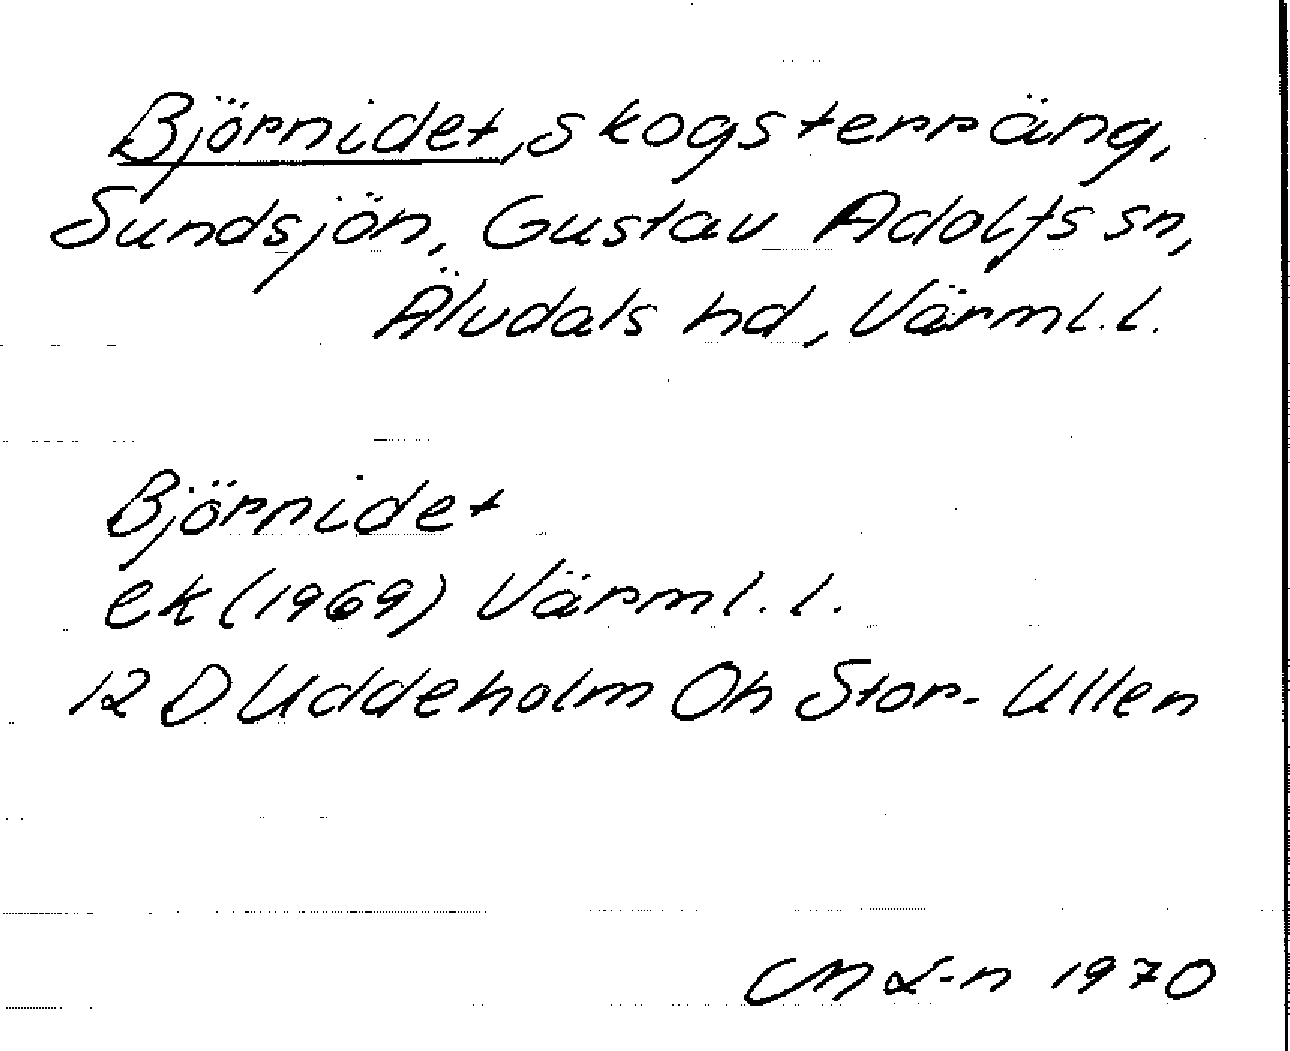 Björnidet, skogsterräng,
Sundsjön, Gustav Adolfs sn,
Älvdals hd, Värml. l.
Björnidet
ek (1969) Värml. l.
12 D Uddeholm Oh Stor-Ullen
M L-n 1970